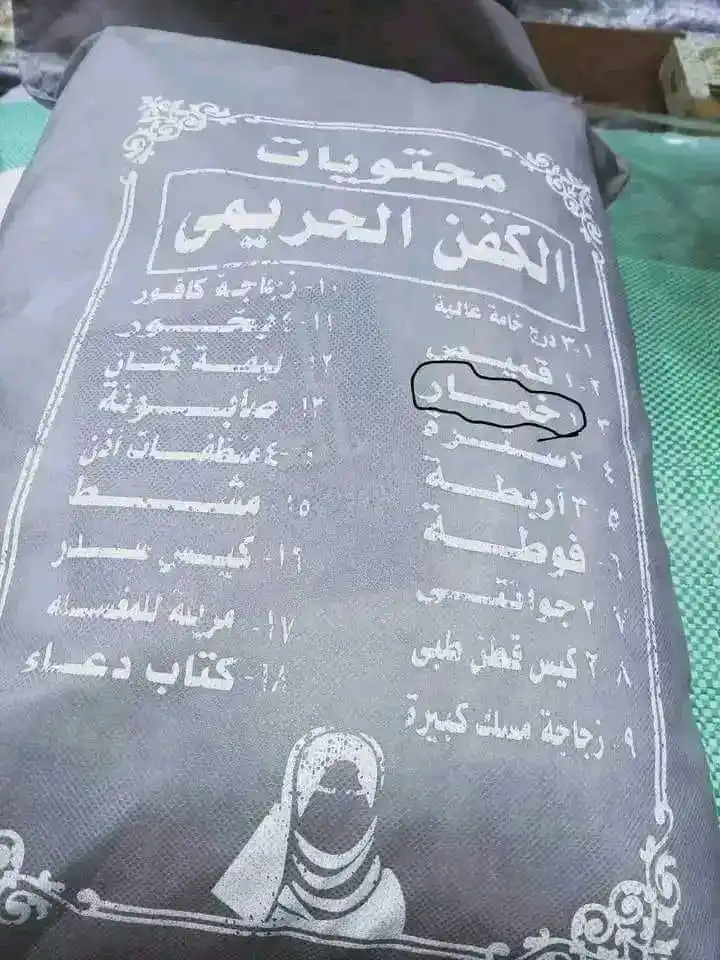 محتويات
الكفن الحريمى
١- ٣ درج خامة عالية
٢- ١ قميص
٣ ١ خمار
٤ ٢ سترة
٥ ٣ أربطة
٦ فوطة
٧ ٢ جوانتى
٨ ٢ كيس قطن طبى
٩ زجاجة مسك كبيرة
١٠- زجاجة كافور
١١- ٤ بخور
١٢ ليفة كتان
١٣ صابونة
٤ منظفات أذن
١٥ مشط
١٦- كيس سدر
١٧- مريلة للمغسلة
١٨- كتاب دعاء